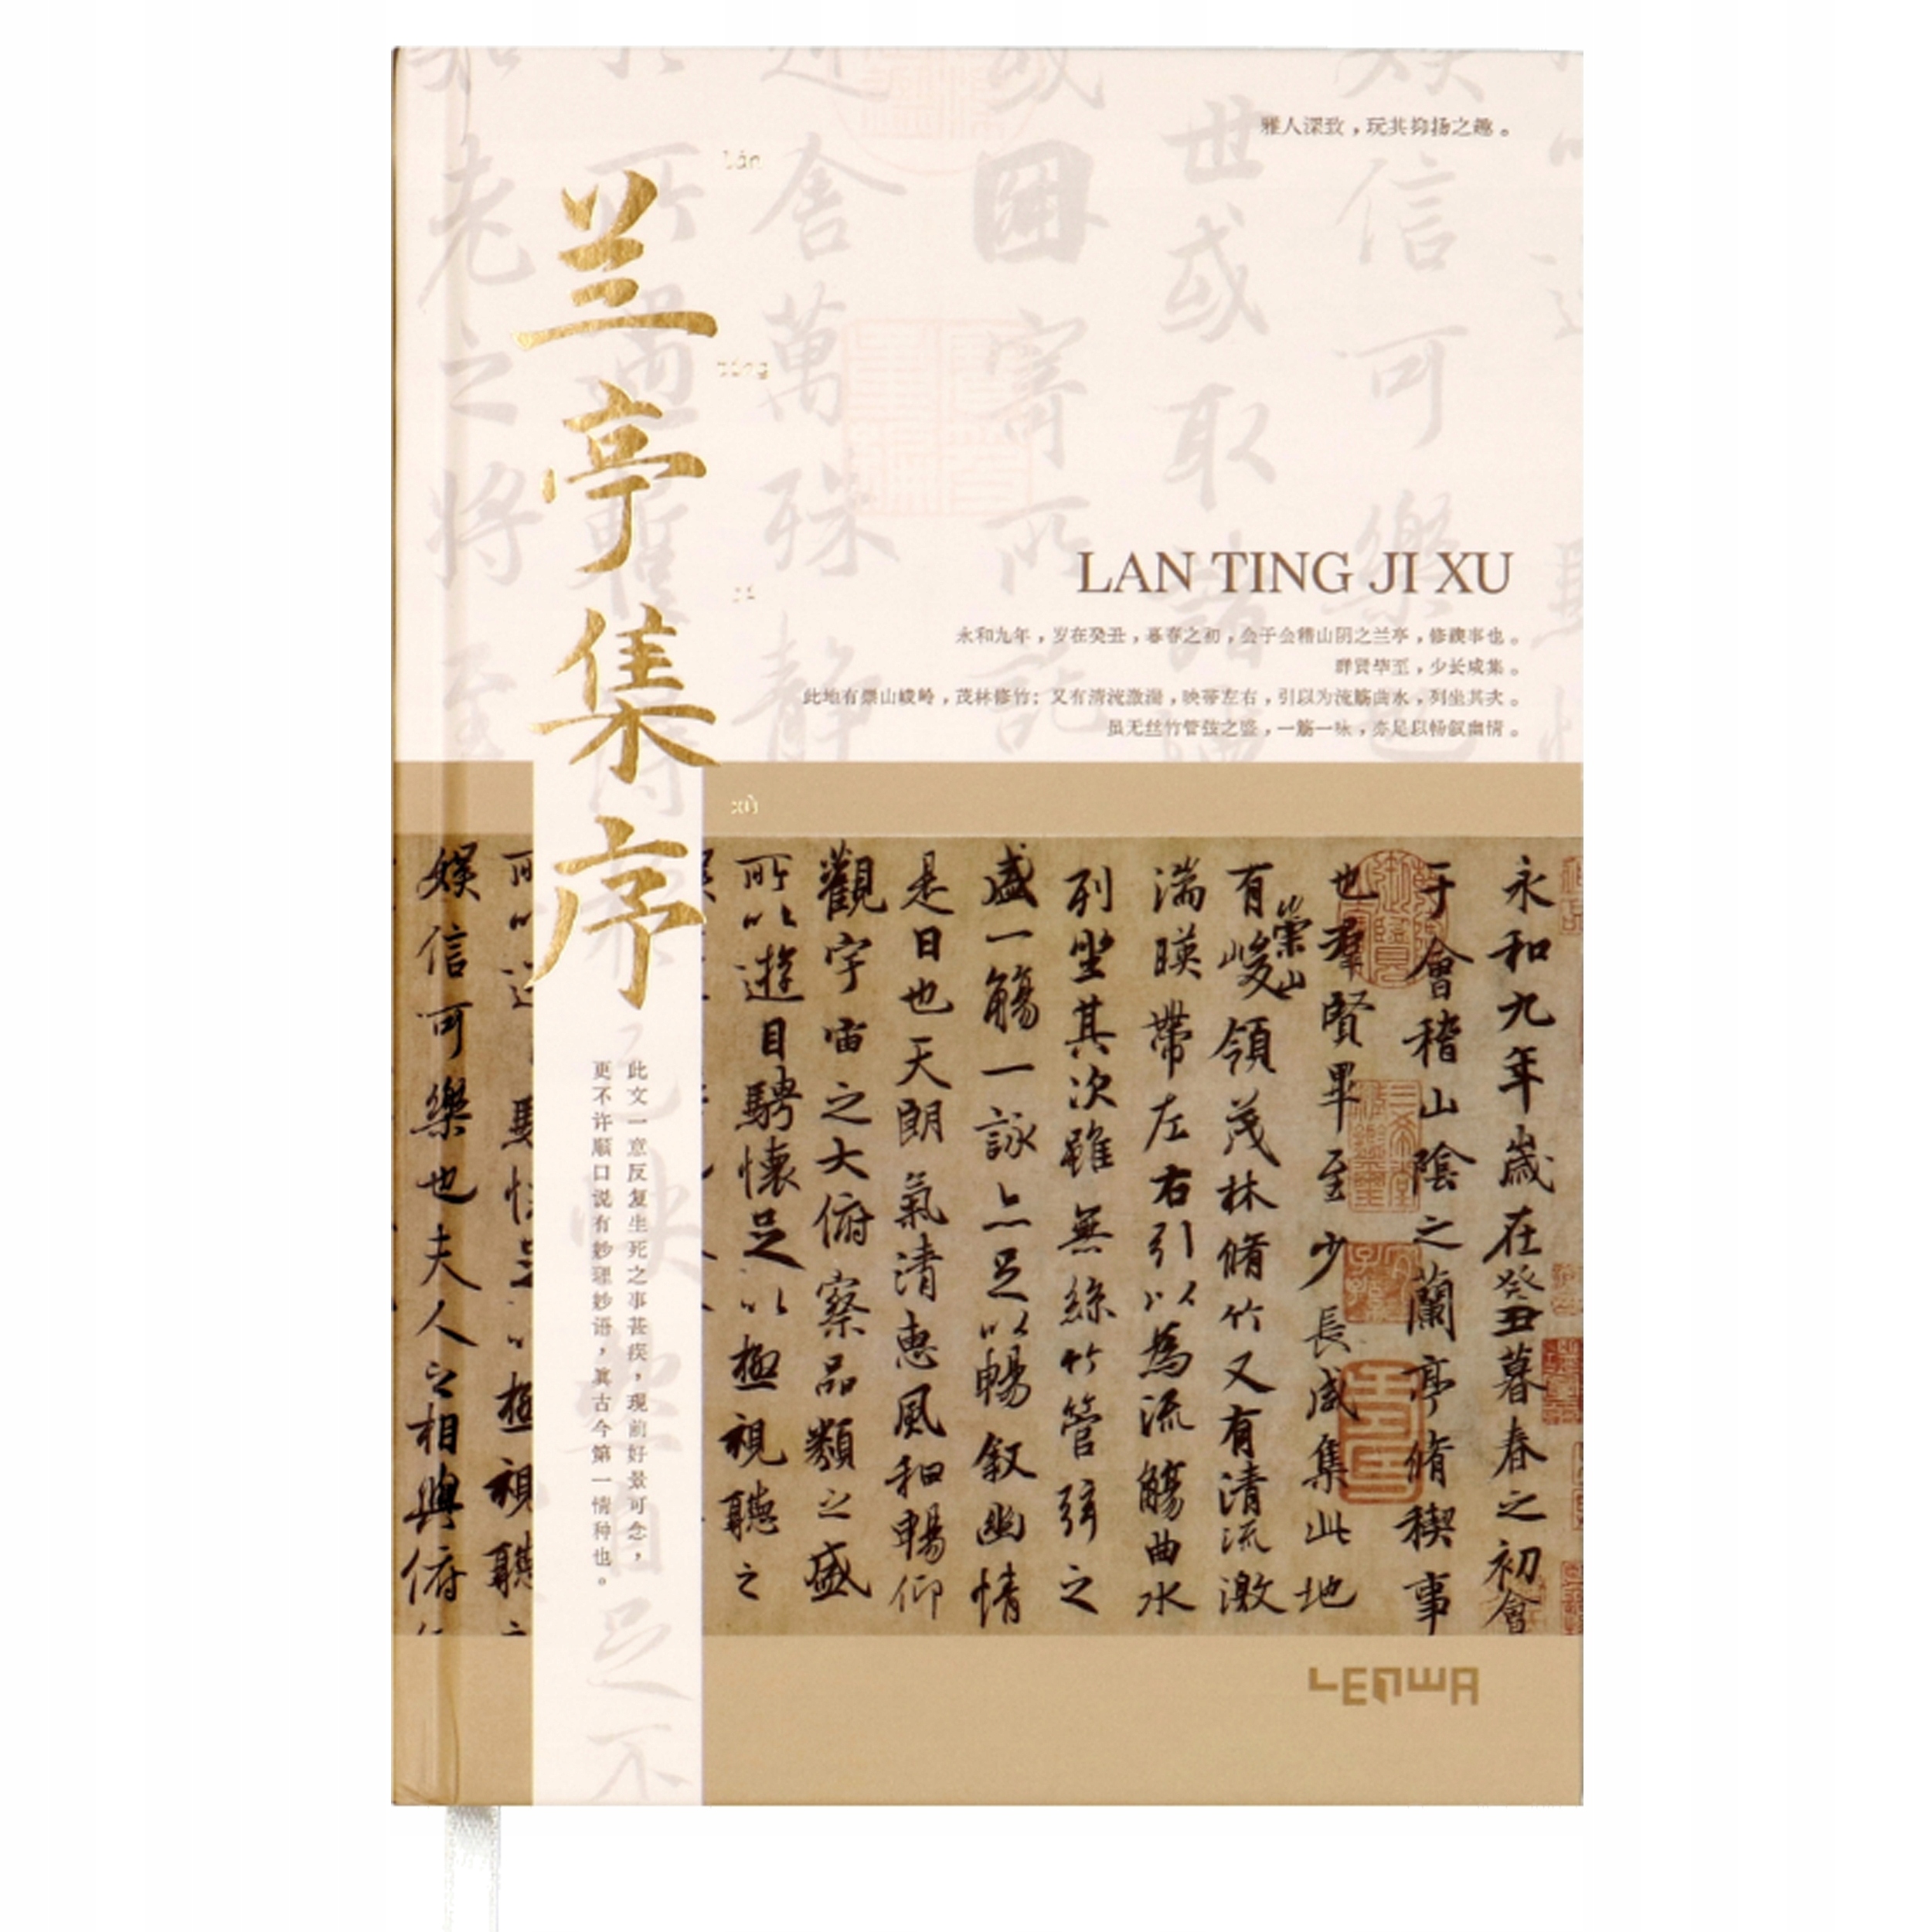 雅人深致，玩其抑扬之趣。
lán
兰
tíng
亭
jí
集
xù
序
LAN TING JI XU
永和九年，岁在癸丑，暮春之初，会于会稽山阴之兰亭，修禊事也。
群贤毕至，少长咸集。
此地有崇山峻岭，茂林修竹；又有清流激湍，映带左右，引以为流觞曲水，列坐其次。
虽无丝竹管弦之盛，一觞一咏，亦足以畅叙幽情。
永和九年歲在癸丑暮春之初會
于會稽山陰之蘭亭脩稧事
也羣賢畢至少長咸集此地
有崇山峻領茂林脩竹又有清流激
湍暎帶左右引以為流觴曲水
列坐其次雖無絲竹管弦之
盛一觴一詠亦足以暢叙幽情
是日也天朗氣清惠風和暢仰
觀宇宙之大俯察品類之盛
所以遊目騁懷足以極視聽之
娛信可樂也夫人之相與俯
此文一意反复生死之事甚疾，现前好景可念，
更不许顺口说有妙理妙语，真古今第一情种也。
LENWA